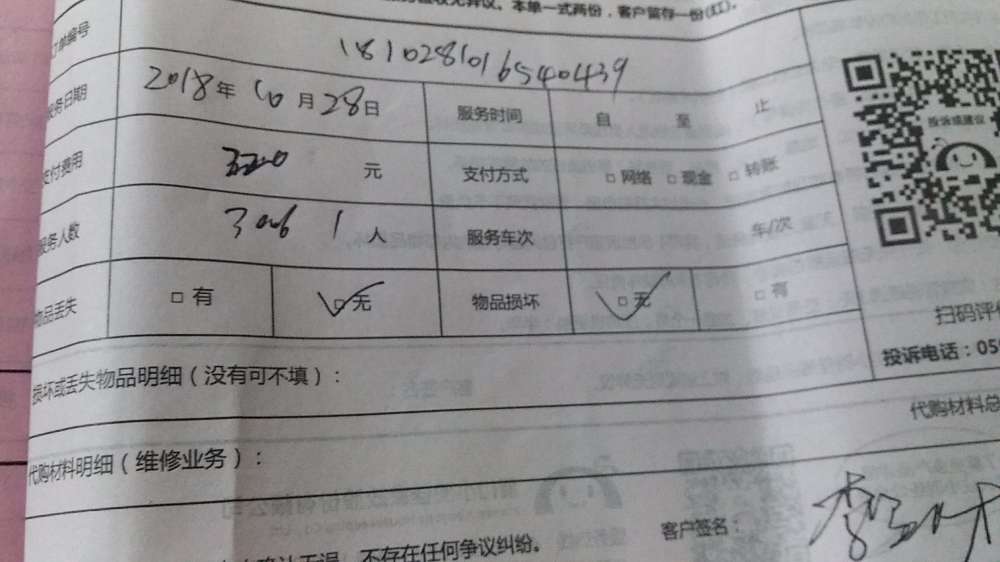 无异议。本单一式两份，客户留存一份(红)。
订单编号 1810281016540439
服务日期 2018年10月28日 服务时间 自 至 止
支付费用 元 支付方式 □网络 □现金 □转账
服务人数 1人 服务车次 车/次
物品丢失 □有 □无 物品损坏 □无 □有
投诉或建议
扫码评价
投诉电话：05
损坏或丢失物品明细（没有可不填）：
代购材料总
代购材料明细（维修业务）：
客户签名：
不存在任何争议纠纷。